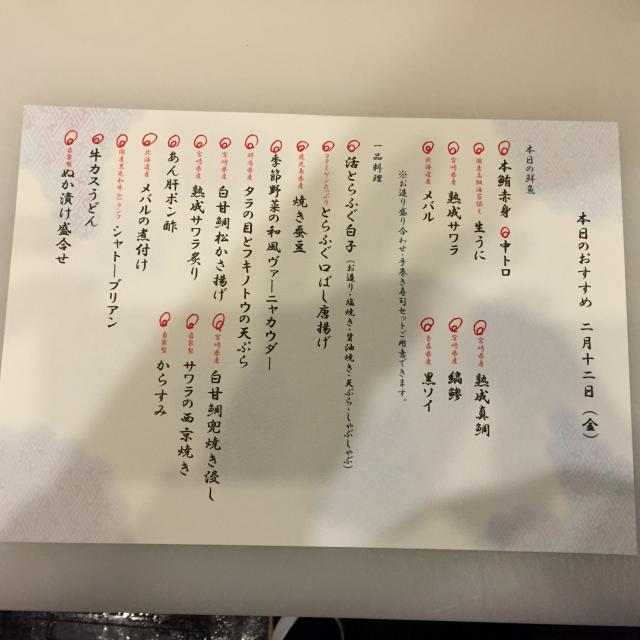 本日のおすすめ 二月十二日(金)
本日の鮮魚
本鮪赤身
中トロ
国産高級海苔添え 生うに
宮崎県産 熟成真鯛
宮崎県産 熟成サワラ
宮崎県産 縞鯵
北海道産 メバル
青森県産 黒ソイ
※お造り盛り合わせ・手巻き寿司セットご用意できます。
一品料理
活とらふぐ白子(お造り・塩焼き・醤油焼き・天ぷら・しゃぶしゃぶ)
コラーゲンたっぷり とらふぐ口ばし唐揚げ
鹿児島県産 焼き蚕豆
季節野菜の和風ヴァーニャカウダー
タラの目とフキノトウの天ぷら
宮崎県産 白甘鯛松かさ揚げ
宮崎県産 白甘鯛兜焼き浸し
宮崎県産 熟成サワラ炙り
自家製 サワラの西京焼き
あん肝ポン酢
自家製 からすみ
北海道産 メバルの煮付け
国産黒毛和牛 シャトーブリアン
牛カスうどん
自家製 ぬか漬け盛合せ